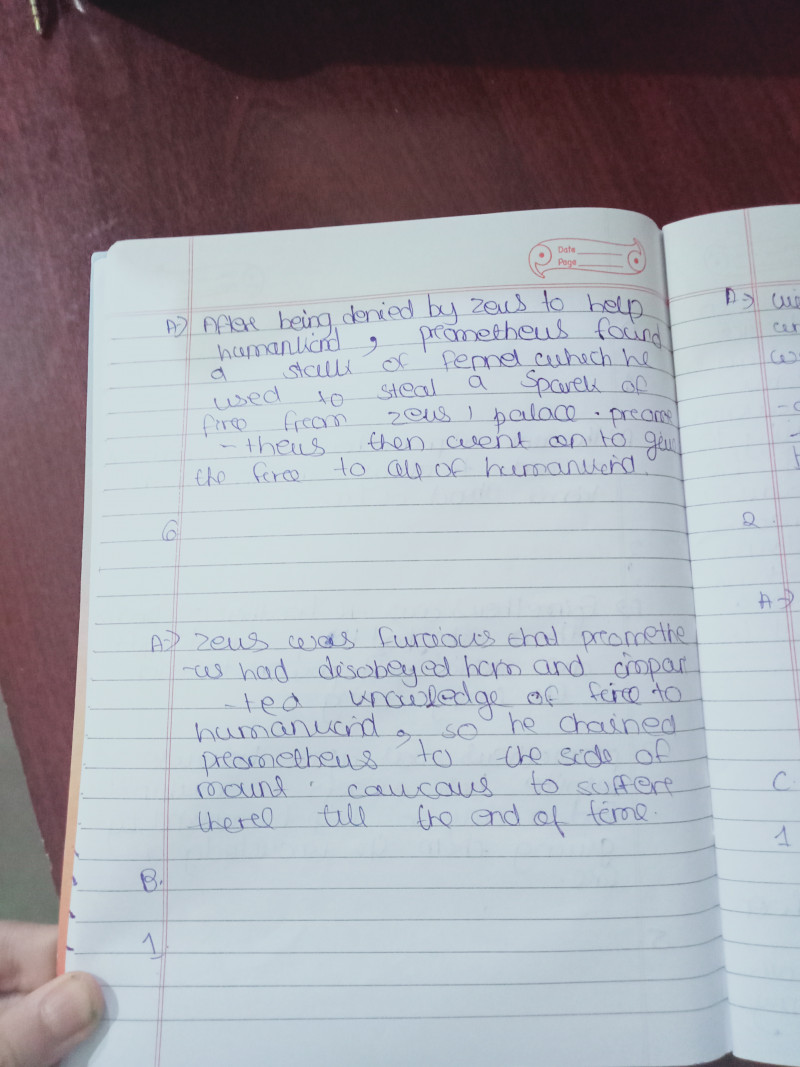 Date
Page
A⇒ After being denied by zeus to help
humankind, prometheus found
a stalk of fennel which he
used to steal a spark of
fire from zeus' palace. prome
-theus then went on to give
the fire to all of humankind.
6
A⇒ zeus was furious that promethe
-us had disobeyed him and impar
-ted knowledge of fire to
humankind, so he chained
prometheus to the side of
mount caucaus to suffer
there till the end of time.
B.
1
A⇒
2
A⇒
C.
1